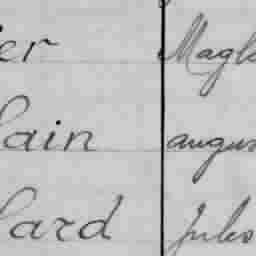 er Magl
lain augus
lard Jules